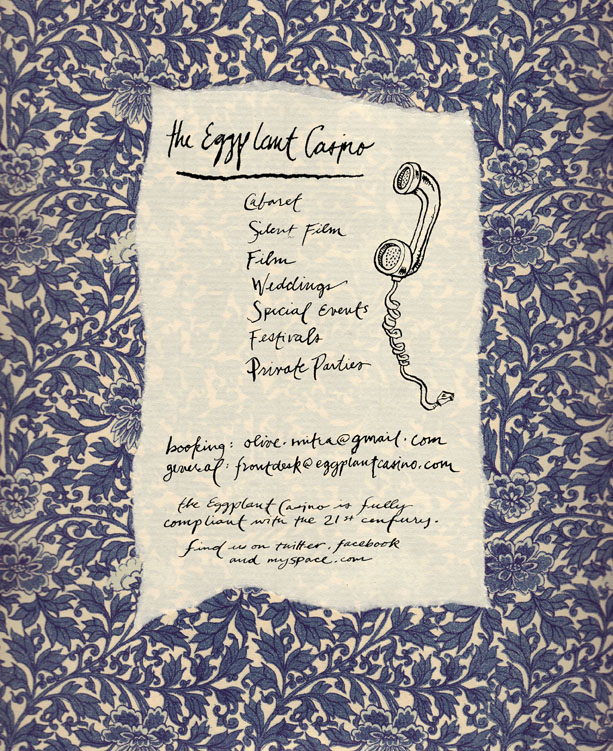 the Eggplant Casino
Cabaret
Silent Film
Film
Weddings
Special Events
Festivals
Private Parties
booking: olive.mitra@gmail.com
general: frontdesk@eggplantcasino.com
the Eggplant Casino is fully
compliant with the 21st century.
find us on twitter, facebook
and myspace.com